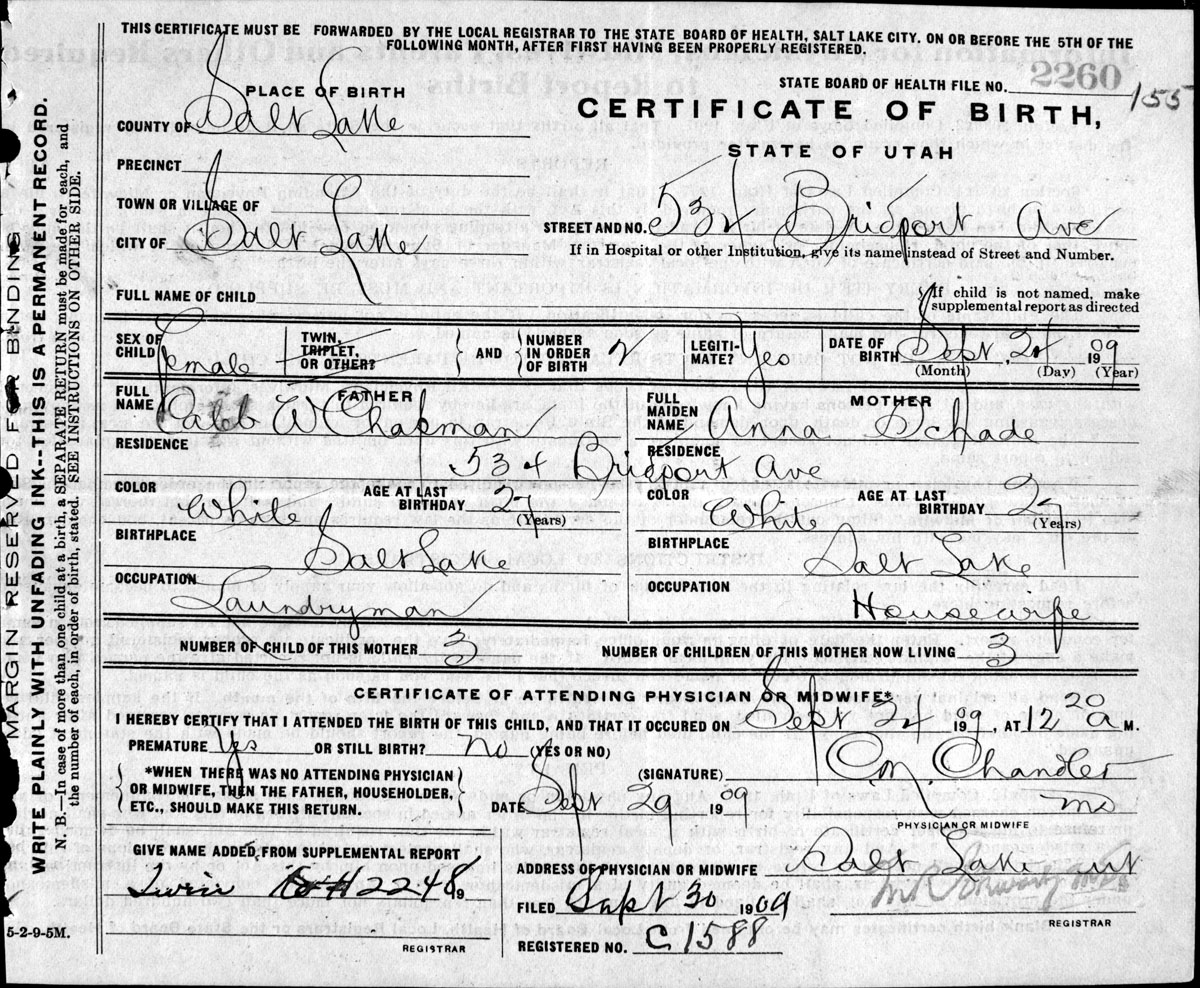 THIS CERTIFICATE MUST BE FORWARDED BY THE LOCAL REGISTRAR TO THE STATE BOARD OF HEALTH, SALT LAKE CITY. ON OR BEFORE THE 5TH OF THE
FOLLOWING MONTH, AFTER FIRST HAVING BEEN PROPERLY REGISTERED.
STATE BOARD OF HEALTH FILE NO. 2260 155
PLACE OF BIRTH
CERTIFICATE OF BIRTH,
COUNTY OF Salt Lake
STATE OF UTAH
PRECINCT
TOWN OR VILLAGE OF
STREET AND NO. Bridport Ave
CITY OF Salt Lake
If in Hospital or other Institution, give its name instead of Street and Number.
FULL NAME OF CHILD
If child is not named, make
supplemental report as directed
SEX OF CHILD female
TWIN, TRIPLET, OR OTHER?
AND
NUMBER IN ORDER OF BIRTH
LEGITIMATE? Yes
DATE OF BIRTH Sept. 1909
(Month) (Day) (Year)
FATHER
FULL NAME W Chapman
MOTHER
FULL MAIDEN NAME Anna Schade
RESIDENCE
RESIDENCE
534 Bridport Ave
COLOR White
AGE AT LAST BIRTHDAY 27
(Years)
COLOR White
AGE AT LAST BIRTHDAY 27
(Years)
BIRTHPLACE Salt Lake
BIRTHPLACE Salt Lake
OCCUPATION Laundryman
OCCUPATION Housewife
NUMBER OF CHILD OF THIS MOTHER 3
NUMBER OF CHILDREN OF THIS MOTHER NOW LIVING 3
CERTIFICATE OF ATTENDING PHYSICIAN OR MIDWIFE*
I HEREBY CERTIFY THAT I ATTENDED THE BIRTH OF THIS CHILD, AND THAT IT OCCURED ON Sept 1909, AT 12 20 a M.
PREMATURE Yes OR STILL BIRTH? no (YES OR NO)
*WHEN THERE WAS NO ATTENDING PHYSICIAN
OR MIDWIFE, THEN THE FATHER, HOUSEHOLDER,
ETC., SHOULD MAKE THIS RETURN.
(SIGNATURE) C. M. Chandler
DATE Sept 29 1909
MD
PHYSICIAN OR MIDWIFE
GIVE NAME ADDED, FROM SUPPLEMENTAL REPORT
ADDRESS OF PHYSICIAN OR MIDWIFE Salt Lake
2248 19
FILED Sept 30 1909
REGISTRAR
REGISTRAR
REGISTERED NO. C 1588
5-2-9-5M.
MARGIN RESERVED FOR BINDING
WRITE PLAINLY WITH UNFADING INK--THIS IS A PERMANENT RECORD.
N. B.—In case of more than one child at a birth, a SEPARATE RETURN must be made for each, and
the number of each, in order of birth, stated. SEE INSTRUCTIONS ON OTHER SIDE.